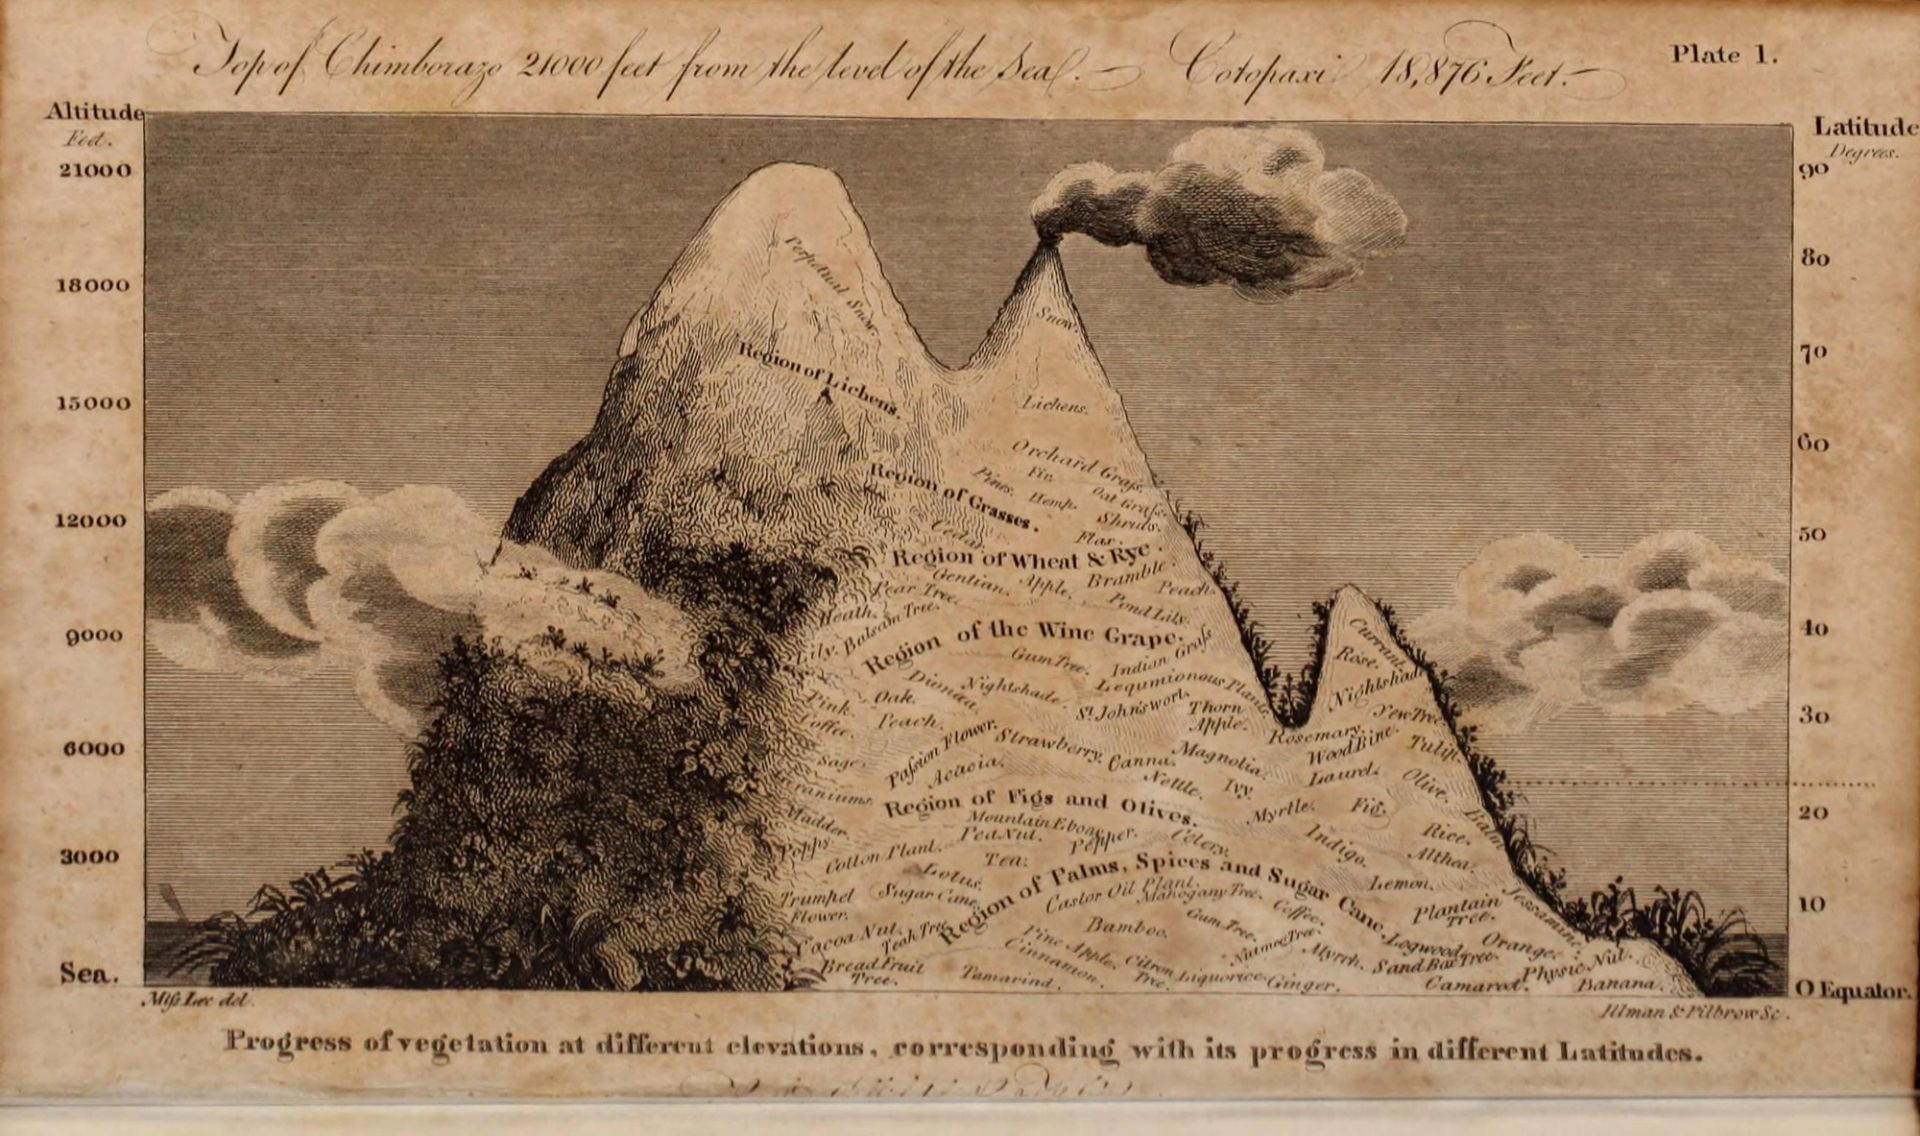 Top of Chimborazo 21000 feet from the level of the Sea. — Cotopaxi 18,876 Feet. —
Plate 1.
Altitude
Feet.
21000
18000
15000
12000
9000
6000
3000
Sea.
Latitude
Degrees.
90
80
70
60
50
40
30
20
10
0 Equator.
Perpetual Snow.
Snow.
Region of Lichens.
Lichens.
Orchard Grass.
Fir.
Pines.
Oat Grass.
Hemp.
Region of Grasses.
Shrubs.
Cedar.
Flax.
Region of Wheat & Rye.
Gentian.
Apple.
Bramble.
Peach.
Pear Tree.
Pond Lily.
Heath.
Balsam Tree.
Lily.
Region of the Wine Grape.
Gum Tree.
Indian Grass
Dionæa.
Nightshade.
Lequmionous Plants.
Pink.
Oak.
St. John's wort.
Thorn
Apple.
Coffee.
Peach.
Passion Flower.
Strawberry.
Canna.
Magnolia.
Sage.
Acacia.
Nettle.
Ivy.
Geraniums.
Region of Figs and Olives.
Madder.
Mountain Ebony.
Pea Nut.
Pepper.
Celery.
Popps.
Cotton Plant.
Tea.
Lotus.
Region of Palms, Spices and Sugar Cane.
Trumpet
Flower.
Sugar Cane.
Castor Oil Plant.
Mahogany Tree.
Coffee.
Cacoa Nut.
Teak Tree.
Bamboo.
Gum Tree.
Nutmeg Tree.
Bread Fruit
Tree.
Pine Apple.
Cinnamon.
Citron
Tree.
Tamarind.
Liquorice.
Myrrh.
Ginger.
Currant.
Rose.
Nightshade
Yew Tree.
Rosemary.
Wood Bine.
Tulip.
Laurel.
Olive.
Myrtle.
Fig.
Balm
Indigo.
Rice.
Althea.
Lemon.
Jessamine.
Plantain
Tree.
Logwood.
Orange.
Sand Box Tree.
Physic Nut.
Camarod.
Banana.
Miss Lee del.
Illman & Pilbrow Sc.
Progress of vegetation at different elevations, corresponding with its progress in different Latitudes.